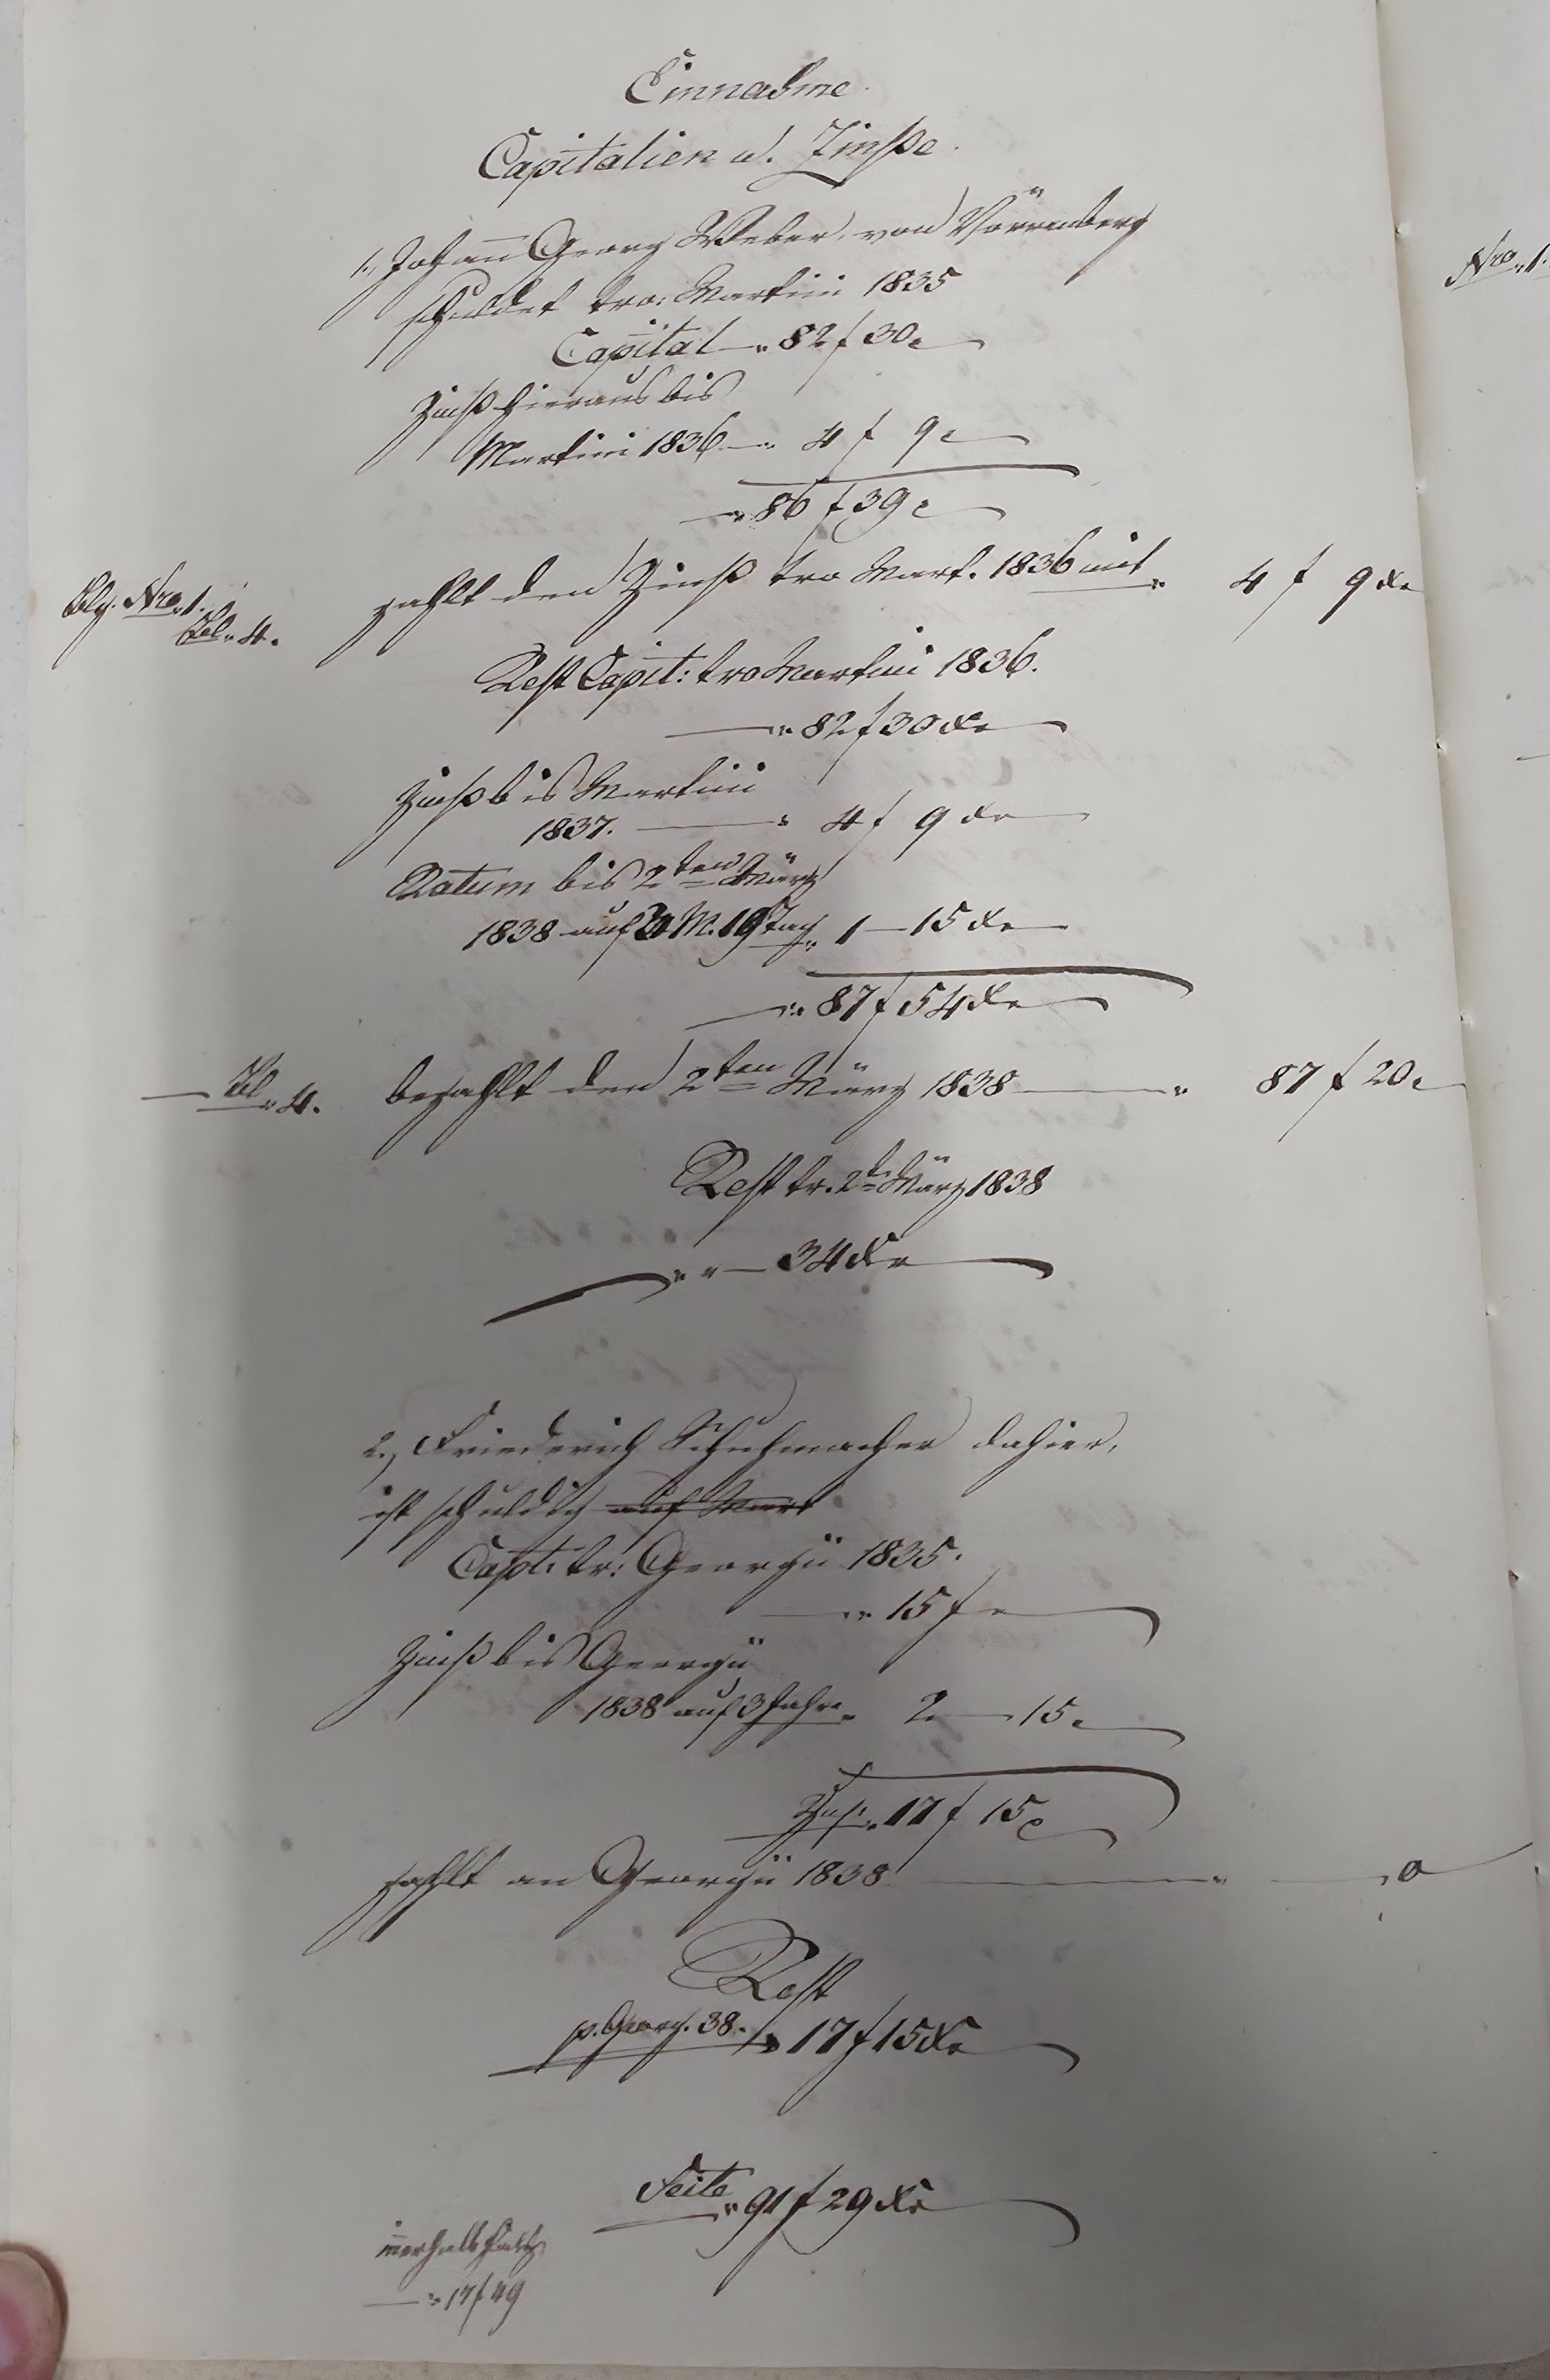 Einnahme.
Capitalien u. Zinße.
1., Johann Georg Weber, von Vörrenberg
schuldet tro: Martini 1835
Capital " 82 f 30 x
Zinß hieraus bis
Martini 1836 " 4 f 9 x
" 86 f 39 x
Blg. Nro. 1.
zahlt den Zinß tro Mart. 1836 mit " 4 f 9 xr
" 4.
Rest Capit: tro Martini 1836.
" 82 f 30 xr
Zinß bis Martini
1837. " 4 f 9 xr
Ratum bis 2ten März
1838 auf 3 M. 19 Tag " 1 — 15 xr
" 87 f 54 xr
" 4. bezahlt den 2ten März 1838 " 87 f 20 x
Rest tr. 2t. März 1838
" " — 34 xr
2., Friederich Schuhmacher dahier,
ist schuldig auf Mart
Capt. tr: Georgii 1835.
" 15 f
Zinß bis Georgii
1838 auf 3 Jahre " 2 — 15 x
Zus. " 17 f 15 x
zahlt an Georgii 1838 " — , 0
Rest
p. Georg. 38. " 17 f 15 xr
Seite " 91 f 29 xr
innerhalb
" 17 f 49
Nro. 1.